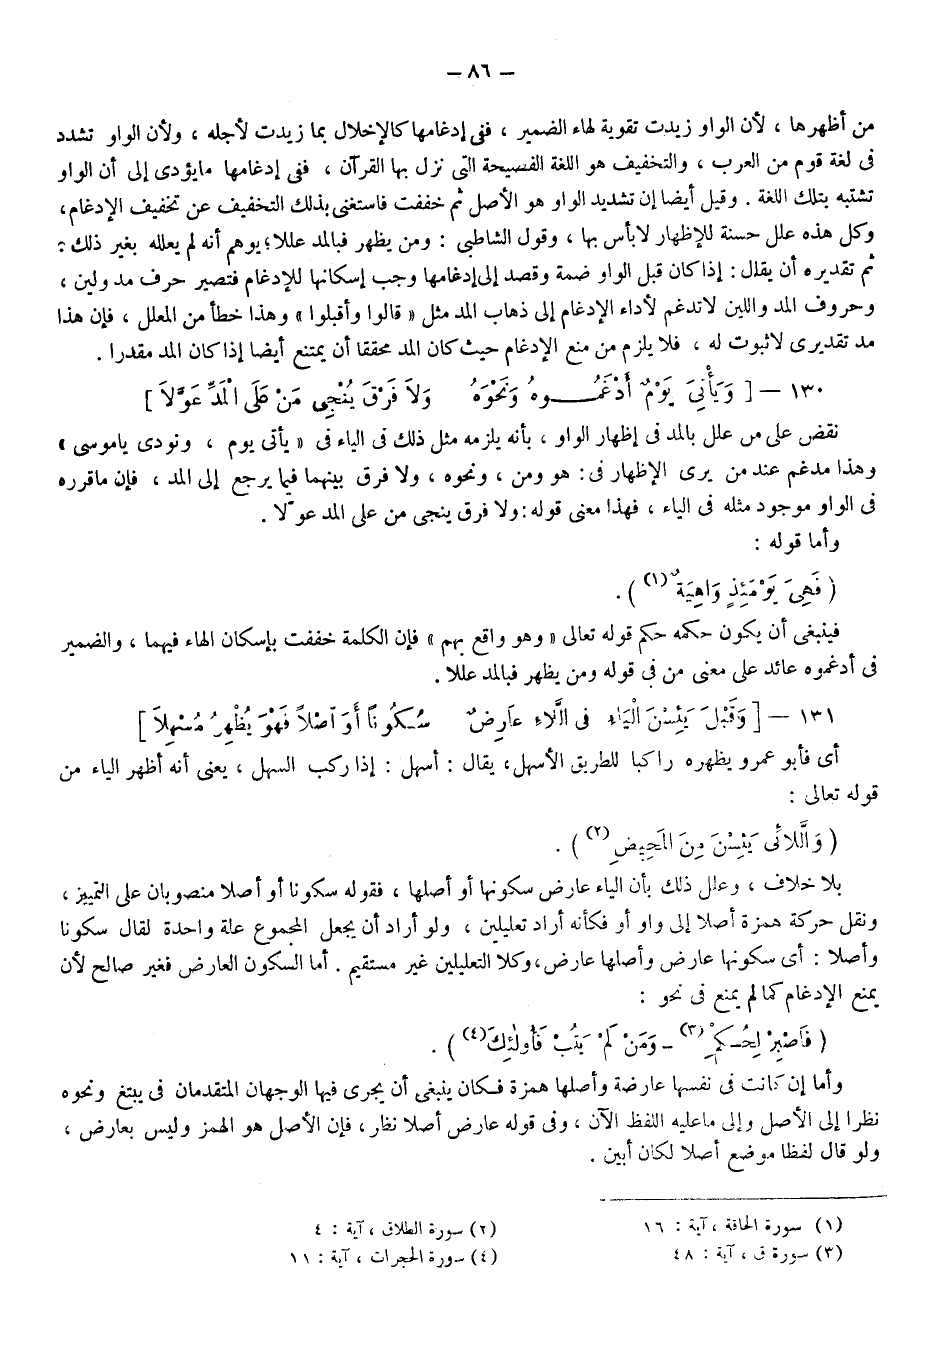 — ٨٦ —
من أظهرها ، لأن الواو زيدت تقوية لهاء الضمير ، ففى إدغامها كالإخلال بما زيدت لأجله ، ولأن الواو تشدد
فى لغة قوم من العرب ، والتخفيف هو اللغة الفصيحة التى نزل بها القرآن ، ففى إدغامها مايؤدى إلى أن الواو
تشتبه بتلك اللغة . وقيل أيضا إن تشديد الواو هو الأصل ثم خففت فاستغنى بذلك التخفيف عن تخفيف الإدغام،
وكل هذه علل حسنة للإظهار لابأس بها ، وقول الشاطبى : ومن يظهر فبالمد عللا؛ يوهم أنه لم يعلله بغير ذلك :
ثم تقديره أن يقال : إذا كان قبل الواو ضمة وقصد إلى إدغامها وجب إسكانها للإدغام فتصير حرف مد ولين ،
وحروف المد واللين لاتدغم لأداء الإدغام إلى ذهاب المد مثل « قالوا وأقبلوا » وهذا خطأ من المعلل ، فإن هذا
مد تقديرى لاثبوت له ، فلا يلزم من منع الإدغام حيث كان المد محققا أن يمتنع أيضا إذا كان المد مقدرا .
١٣٠ — [ وَيَأْتِىَ يَوْمٌ أَدْغَمُـــوهُ وَنَحْوَهُ وَلَا فَرْقَ يُنْجِى مَنْ عَلَى الْمَدِّ عَوَّلَا ]
نقض على من علل بالمد فى إظهار الواو ، بأنه يلزمه مثل ذلك فى الياء فى « يأتى يوم ، ونودى ياموسى »
وهذا مدغم عند من يرى الإظهار فى : هو ومن ، ونحوه ، ولا فرق بينهما فيما يرجع إلى المد ، فإن ماقرره
فى الواو موجود مثله فى الياء ، فهذا معنى قوله : ولا فرق ينجى من على المد عوّلا .
وأما قوله :
( فَهِىَ يَوْمَئِذٍ وَاهِيَةٌ (١) ) .
فينبغى أن يكون حكمه حكم قوله تعالى « وهو واقع بهم » فإن الكلمة خففت بإسكان الهاء فيهما ، والضمير
فى أدغموه عائد على معنى من فى قوله ومن يظهر فبالمد عللا .
١٣١ — [ وَقَبْلَ يَئِسْنَ الْيَاءِ فِى الَّلاءِ عَارِضٌ سُكُونًا أَوَ اصْلاً فَهْوَ يُظْهِرُ مُسْهِلاَ ]
أى فأبو عمرو يظهره راكبا للطريق الأسهل، يقال : أسهل : إذا ركب السهل ، يعنى أنه أظهر الياء من
قوله تعالى :
( وَالَّلائى يَئِسْنَ مِنَ الْمَحِيضِ (٢) ) .
بلا خلاف ، وعلل ذلك بأن الياء عارض سكونها أو أصلها ، فقوله سكونا أو أصلا منصوبان على التمييز ،
ونقل حركة همزة أصلا إلى واو أو فكأنه أراد تعليلين ، ولو أراد أن يجعل المجموع علة واحدة لقال سكونا
وأصلا : أى سكونها عارض وأصلها عارض، وكلا التعليلين غير مستقيم . أما السكون العارض فغير صالح لأن
يمنع الإدغام كما لم يمنع فى نحو :
( فَاصْبِرْ لِحُـكْمِ (٣) ـ وَمَنْ لَمْ يَتُبْ فَأُولٰئِكَ (٤) ) .
وأما إن كانت فى نفسها عارضة وأصلها همزة فكان ينبغى أن يجرى فيها الوجهان المتقدمان فى يبتغ ونحوه
نظرا إلى الأصل وإلى ماعليه اللفظ الآن ، وفى قوله عارض أصلا نظار ، فإن الأصل هو الهمز وليس بعارض ،
ولو قال لفظا موضع أصلا لكان أبين .
(١) سورة الحاقة ، آية : ١٦
(٢) سورة الطلاق ، آية : ٤
(٣) سورة ق ، آية : ٤٨
(٤) سورة الحجرات ، آية : ١١